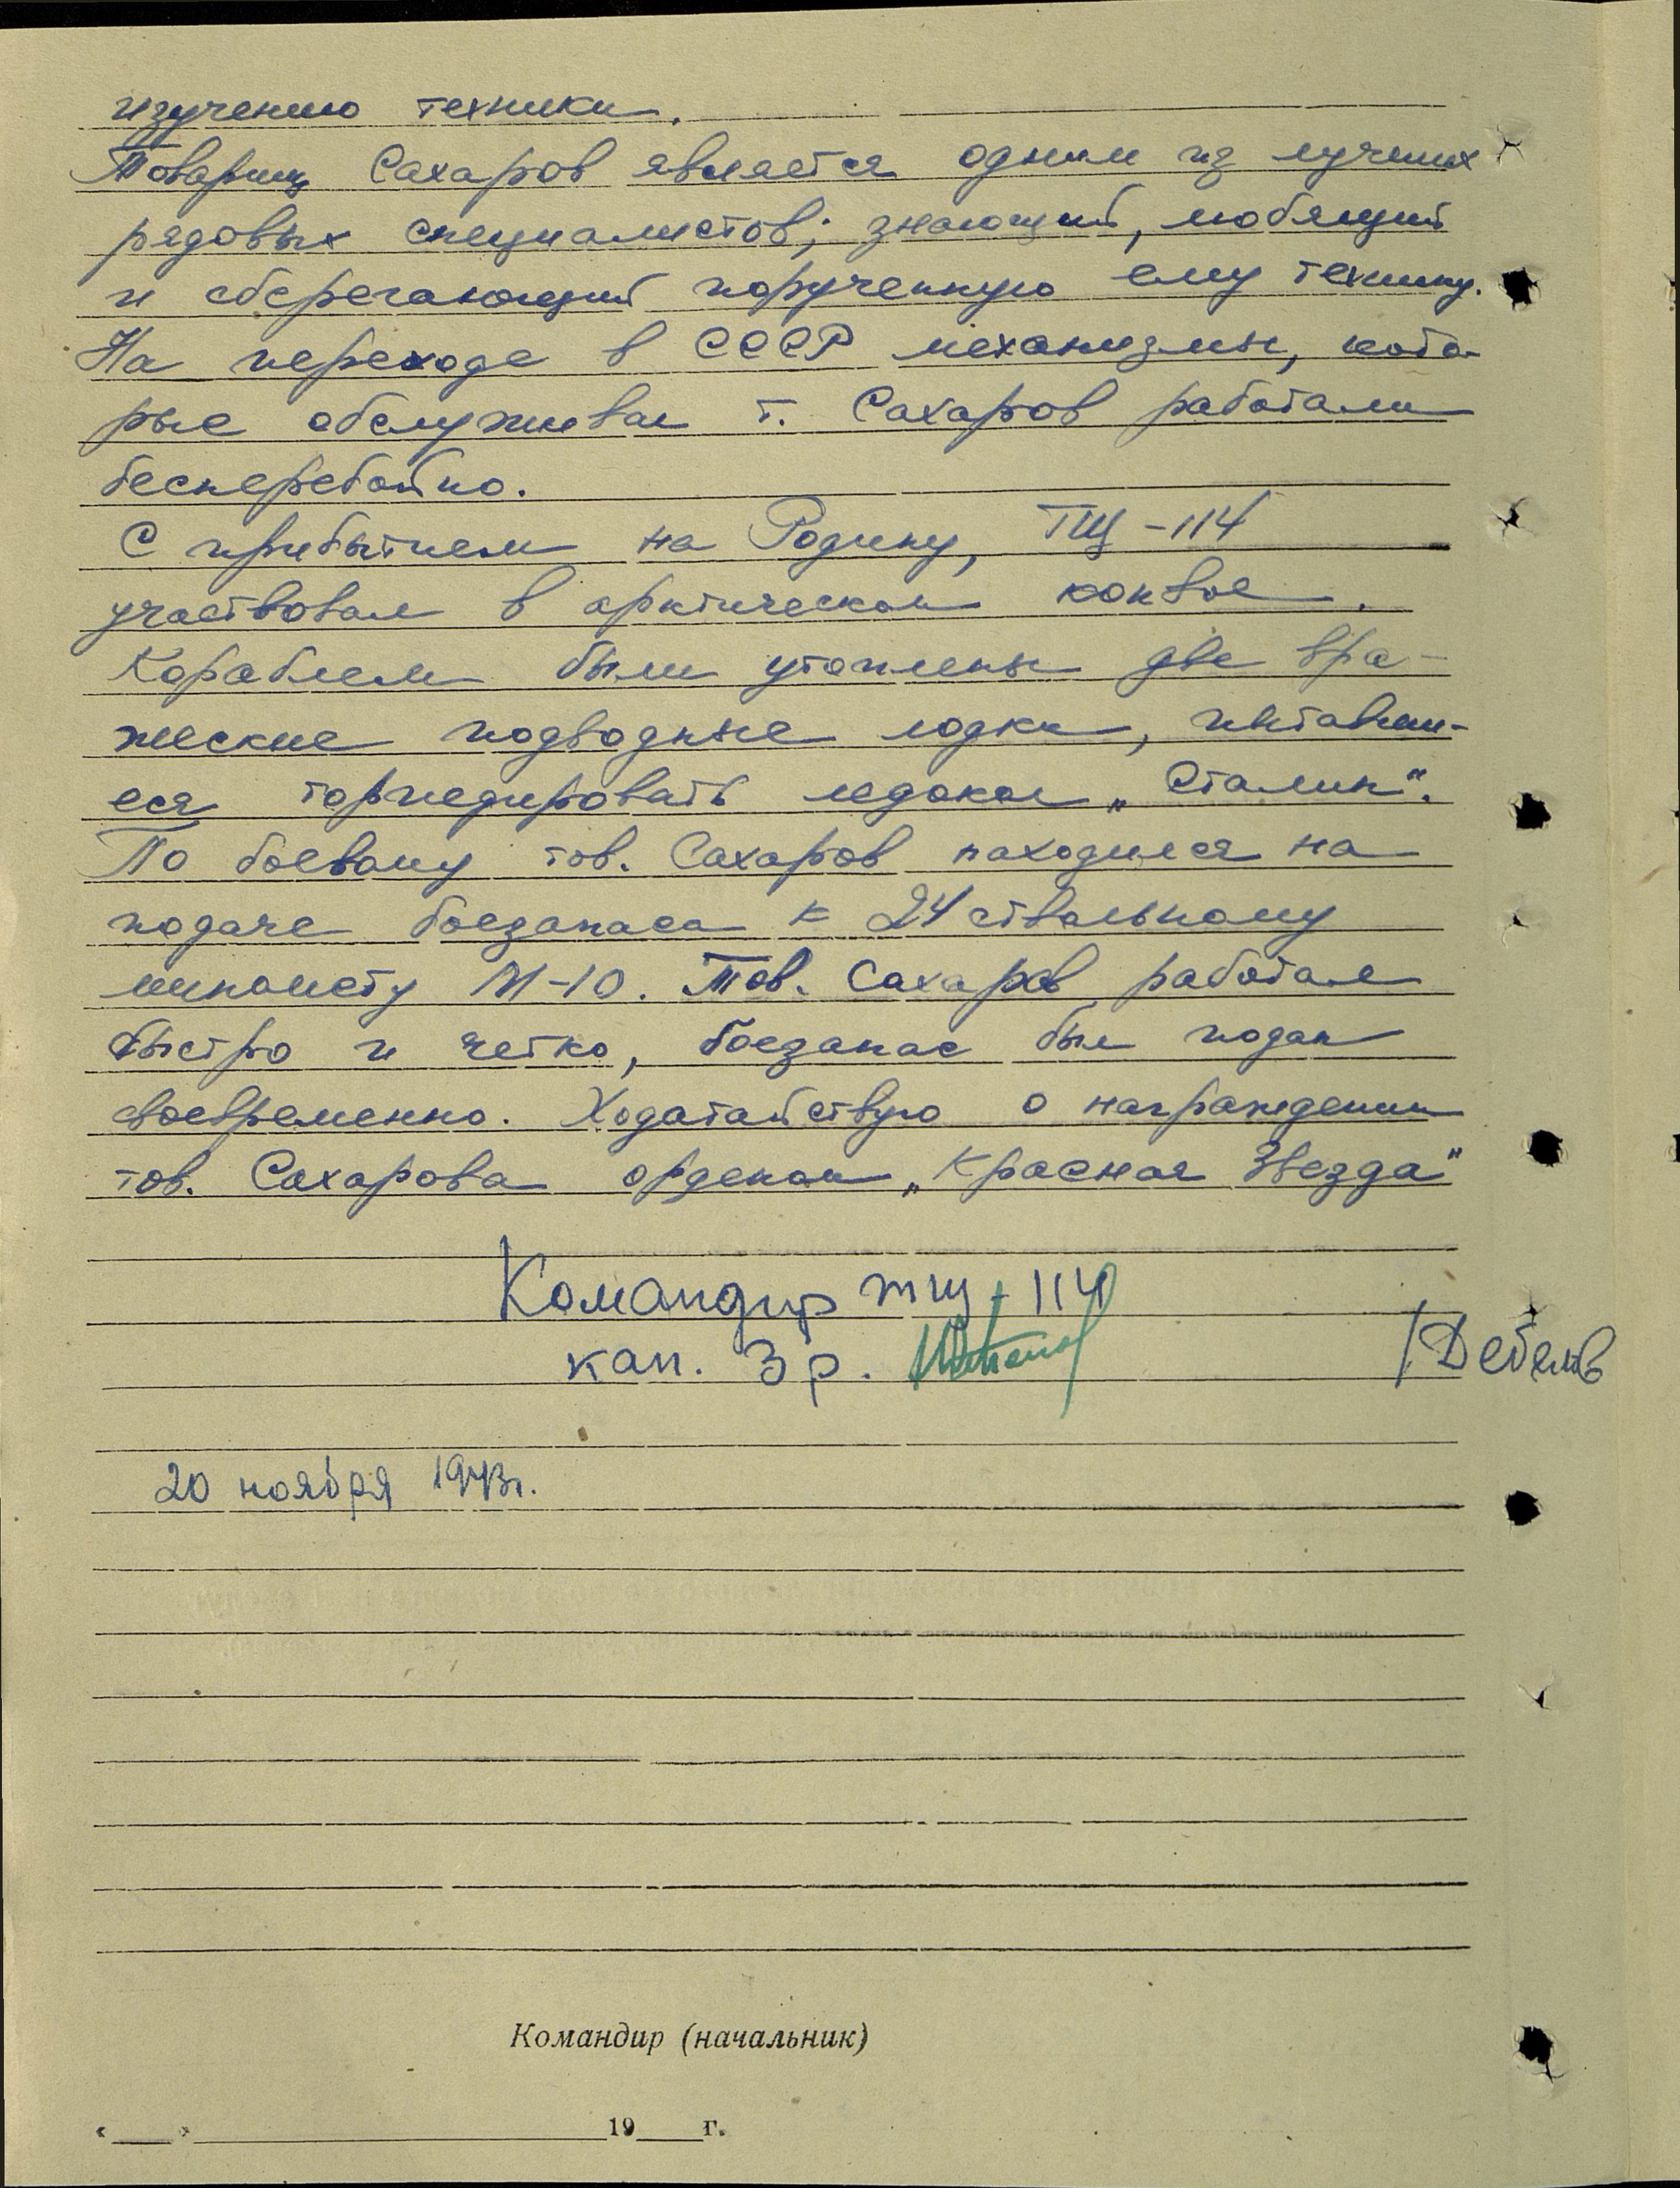 изучению техники.
Товарищ Сахаров является одним из лучших
рядовых специалистов; знающий, любящий
и сберегающий порученную ему технику.
На переходе в СССР механизмы, кото-
рые обслуживал т. Сахаров работали
бесперебойно.
С прибытием на Родину, ТЩ-114
участвовал в арктическом конвое.
Кораблем были утоплены две вра-
жеские подводные лодки, пытавши-
еся торпедировать ледокол „Сталин".
По боевому тов. Сахаров находился на
подаче боезапаса к 24 ствольному
миномету М-10. Тов. Сахаров работал
быстро и четко, боезапас был подан
своевременно. Ходатайствую о награждении
тов. Сахарова орденом „Красная Звезда"
Командир тщ-114
кап. 3 р. /Дебелов
20 ноября 1943г.
Командир (начальник)
«___»____________19___г.